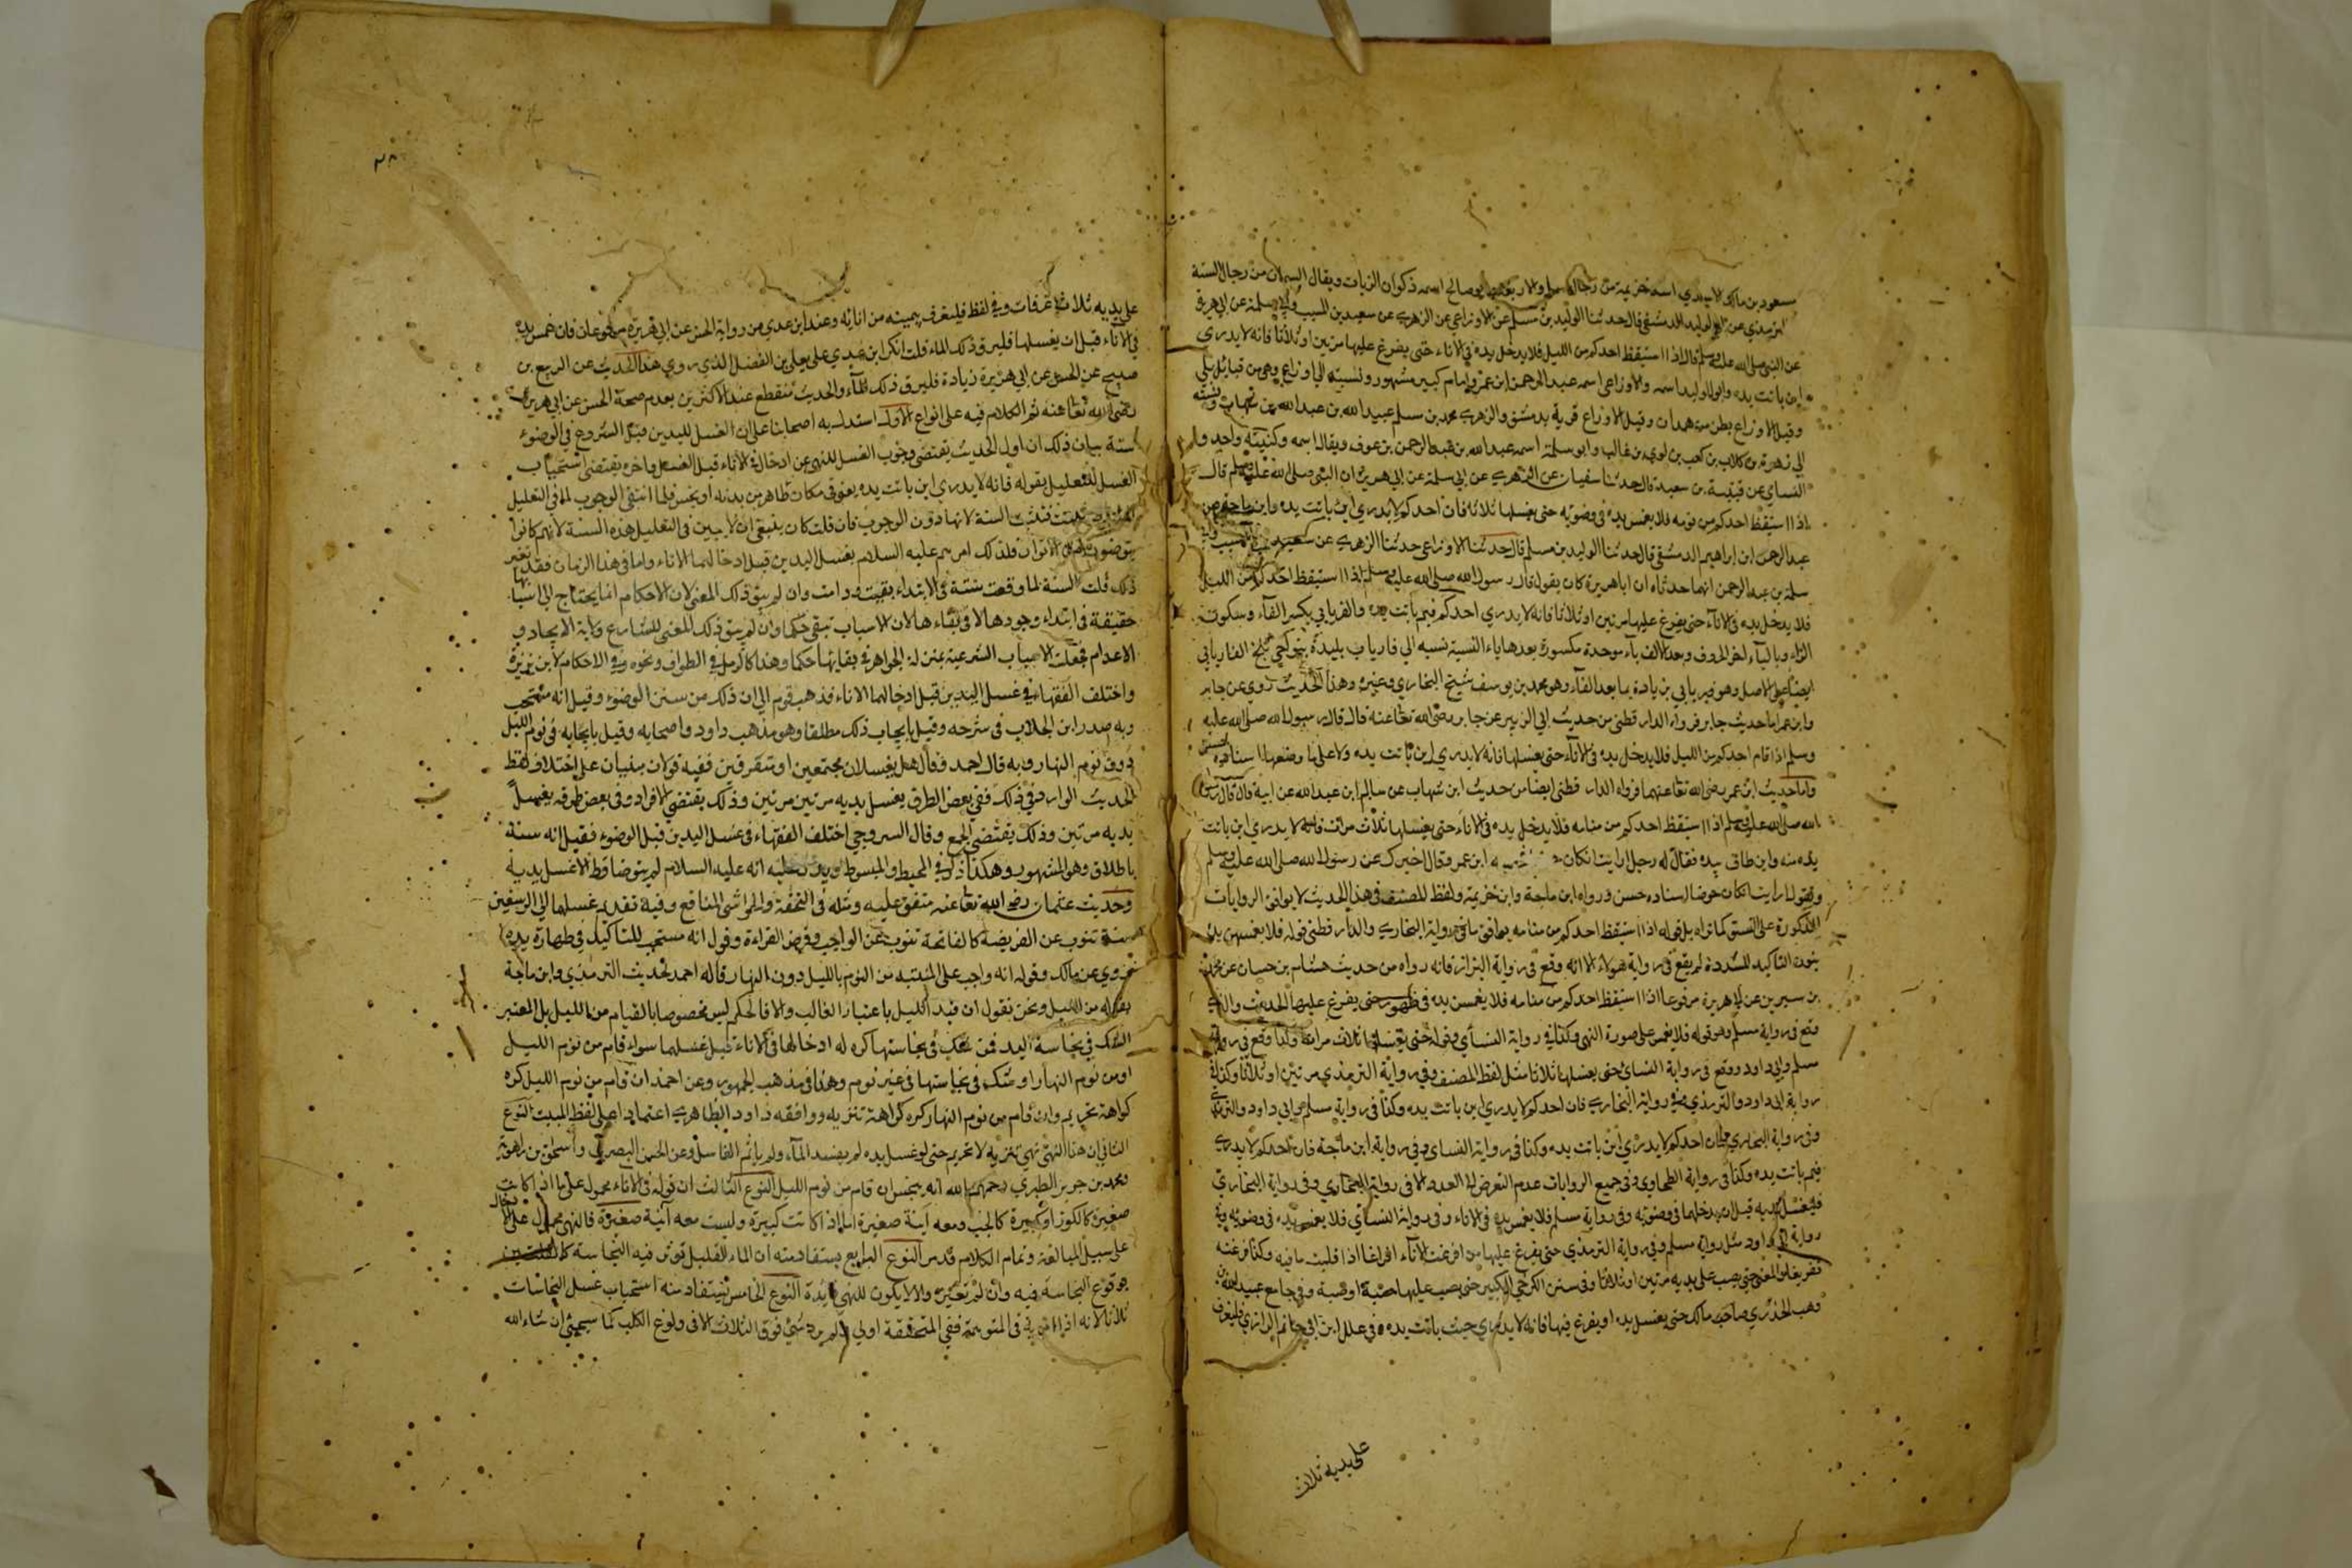 مسعود بن مالك الاسدي اسمه خزيمة من رجال مسلم والاربعة ابو صالح اسمه ذكوان الزيات ويقال السمان من رجال الستة
الترمذي عن ابي الوليد الدمشقي قال حدثنا الوليد بن مسلم عن الاوزاعي عن الزهري عن سعيد بن المسيب وابي سلمة عن ابي هريرة
عن النبي صلى الله عليه وسلم قال اذا استيقظ احدكم من الليل فلا يدخل يده في الاناء حتى يفرغ عليها مرتين او ثلاثا فانه لا يدري
اين باتت يده وابو الوليد اسمه والاوزاعي اسمه عبد الرحمن ابن عمرو امام كبير مشهور ونسبته الى اوزاع وهي من قبائل
وقيل الاوزاع بطن من همدان وقيل الاوزاع قرية بدمشق والزهري محمد بن مسلم عبيد الله بن عبد الله بن شهاب ونسبته
الى زهرة بن كلاب بن كعب بن لوي بن غالب وابو سلمة اسمه عبد الله بن عبد الرحمن بن عوف ويقال اسمه وكنيته واحد و
النساي عن قتيبة بن سعيد قال حدثنا سفيان عن الزهري عن ابي سلمة عن ابي هريرة ان النبي صلى الله عليه وسلم قال
اذا استيقظ احدكم من نومه فلا يغمس يده في وضوئه حتى يغسلها ثلاثا فان احدكم لا يدري اين باتت يده وابن ماجة عن
عبد الرحمن ابن ابراهيم الدمشقي قال حدثنا الوليد بن مسلم قال حدثنا الاوزاعي حدثنا الزهري عن سعيد بن المسيب وابي
سلمة بن عبد الرحمن انهما حدثاه ان ابا هريرة كان يقول قال رسول الله صلى الله عليه وسلم اذا استيقظ احدكم من الليل
فلا يدخل يده في الاناء حتى يفرغ عليها مرتين او ثلاثا فانه لا يدري احدكم فيم باتت يده والفريابي بكسر الفاء وسكون
الراء وبالياء اخر الحروف وبعد الالف باء موحدة مكسورة بعدها ياء النسبة نسبه الى فارياب بليدة بنواحي بلخ الفاريابي
ايضا على الاصل وهو فيريابي بزيادة يا بعد الفاء وهو محمد بن يوسف شيخ البخاري وغيره وهذا الحديث روي عن جابر
وابن عمر اما حديث جابر فرواه الدار قطني من حديث ابي الزبير عن جابر رضي الله تعا عنه قال قال رسول الله صلى الله عليه
وسلم اذا قام احدكم من الليل فلا يدخل يده في الاناء حتى يغسلها فانه لا يدري اين باتت يده ولا على ما وضعها اسناده حسن
واما حديث ابن عمر رضي الله تعا عنهما فرواه الدار قطني ايضا من حديث ابن شهاب عن سالم ابن عبد الله عن ابيه قال قال رسول
الله صلى الله عليه وسلم اذا استيقظ احدكم من منامه فلا يدخل يده في الاناء حتى يغسلها ثلاث مرات فانه لا يدري اين باتت
يده منه واين طافت يده فقال له رجل ارايت ان كان ابن عمر وقال اخبرك عن رسول الله صلى الله عليه وسلم
وتقول ارايت ان كان حوضا اسناده حسن ورواه ابن ماجة وابن خزيمة ولفظ المصنف في هذا الحديث لا يوافق الروايات
المذكورة على النسق كما تراه بل قوله اذا استيقظ احدكم من منامه يوافق ما في رواية البخاري والدار قطني قوله فلا يغمسن يده
بنون التاكيد المشددة لم يقع في رواية هولاء الا انه وقع في رواية البزار فانه رواه من حديث هشام بن حسان عن محمد
بن سيرين عن ابي هريرة مرفوعا اذا استيقظ احدكم من منامه فلا يغمسن يده في طهوره حتى يفرغ عليها الحديث والذي
وقع في رواية مسلم وهو قوله فلا يغمس على صورة النهي وكذا في رواية النساي وقوله حتى يغسلها ثلاث مرات وكذا وقع في رواية
مسلم وابي داود ووقع في رواية النساي حتى يغسلها ثلاثا مثل لفظ المصنف وفي رواية الترمذي مرتين او ثلاثا وكذا في
رواية ابي داود والترمذي وفي رواية البخاري فان احدكم لا يدري اين باتت يده وكذا في رواية مسلم وابي داود والترمذي
وفي رواية البخاري فان احدكم لا يدري اين باتت يده وكذا في رواية النساي وفي رواية ابن ماجة فان احدكم لا يدري
فيم باتت يده وكذا في رواية الطحاوي وفي جميع الروايات عدم التعرض الى العدد الا في رواية الطحاوي وفي رواية البخاري
فليغسل يديه قبل ان يدخلهما في وضوئه وفي رواية مسلم فلا يغمس يده في الاناء وفي رواية النساي فلا يغمس يده في وضوئه وفي
رواية ابي داود مثل رواية مسلم وفي رواية الترمذي حتى يفرغ عليها من افرغت الاناء افراغا اذا قلبت ما فيه وكذا فرغته
تفريغا والمعنى حتى يصب على يديه مرتين او ثلاثا وفي سنن الكرخي الكبير حتى يصب عليها صبة او صبتين وفي جامع عبد الله بن
وهب المصري صاحب مالك حتى يغسل يده او يفرغ فيها فانه لا يدري حيث باتت يده وفي علل ابن ابي حاتم الرازي فليغرف
على يديه ثلاث
٣٨
على يديه ثلاث غرفات وفي لفظ فليغرف بيمينه من انائه وعند ابن عدي من رواية الحسن عن ابي هريرة مرفوعا فان غمس يده
في الاناء قبل ان يغسلها فليرق ذلك الماء قلت انكر ابن عدي على يعلى بن الفضل الذي روى هذا الحديث عن الربيع بن
صبيح عن الحسن عن ابي هريرة زيادة فليرق ذلك الماء والحديث منقطع عند الاكثرين بعدم صحة الحسن عن ابي هريرة
رضي الله تعا عنه ثم الكلام فيه على انواع الاول استدل به اصحابنا على ان الغسل لليدين قبل الشروع في الوضوء
سنة بيان ذلك ان اول الحديث يقتضي وجوب الغسل للنهي عن ادخال في الاناء قبل الغسل واخره يقتضي استحباب
الغسل للتعليل بقوله فانه لا يدري اين باتت يده يعني في مكان طاهر من بدنه او نجس فلما انتفى الوجوب لما في التعليل
فثبتت السنة لانها دون الوجوب فان قلت كان ينبغي ان لا يبين في التعليل هذه السنة لانهم كانوا
يتوضون من الاتوار فلذلك امرهم عليه السلام بغسل اليدين قبل ادخالهما الاناء واما في هذا الزمان فقد تغير
ذلك قلت السنة لما وقعت سنة في الابتداء بقيت ودامت وان لم يبق ذلك المعنى لان الاحكام انما يحتاج الى اسبابها
حقيقة في ابتداء وجودها لا في بقاءها لان الاسباب تبقى حكما وان لم يبق ذلك المعنى للشارع ولاية الايجاد و
الاعدام فجعلت الاسباب الشرعية بمنزلة الجواهر في بقايها حكما وهذا كالرمل في الطواف ونحوه وفي الاحكام لابن بزيزة
واختلف الفقهاء في غسل اليدين قبل ادخالهما الاناء فذهب قوم الى ان ذلك من سنن الوضوء وقيل انه مستحب
وبه صدر ابن الجلاب في شرحه وقيل بايجاب ذلك مطلقا وهو مذهب داود واصحابه وقيل بايجابه في نوم الليل
دون نوم النهار وبه قال احمد وقال هل يغسلان مجتمعين او متفرقين ففيه قولان مبنيان على اختلاف لفظ
الحديث الوارد في ذلك ففي بعض الطرق يغسل يديه مرتين مرتين وذلك يقتضي الافراد وفي بعض طرقه يغسل
يديه مرتين وذلك يقتضي الجمع وقال السروجي اختلف الفقهاء في غسل اليدين قبل الوضوء فقيل انه سنة
باطلاق وهو المشهور وهكذا ذكر في المحيط والمبسوط ويدل عليه انه عليه السلام لم يتوضا قط الا غسل يديه
وحديث عثمان رضي الله تعا عنه متفق عليه ومثله في التحفة والحواشي المنافع وفيه تقديم غسلهما الى الرسغين
سنة تنوب عن الفريضة كالفاتحة تنوب عن الواجب وفرض القراءة وقول انه مستحب للتاكيد في طهارة يده
روي عن مالك وقوله انه واجب على المنتبه من النوم بالليل دون النهار قاله احمد لحديث الترمذي وابن ماجة
بقوله من الليل ونحن نقول ان قيد الليل باعتبار الغالب والا فالحكم ليس مخصوصا بالقيام من الليل بل المعتبر
الشك في نجاسة اليد فمن شك في نجاستها كره له ادخالها في الاناء قبل غسلها سواء قام من نوم الليل
او من نوم النهار او شك في نجاستها في غير نوم وهذا في مذهب الجمهور وعن احمد ان قام من نوم الليل كره
كراهة تحريم وان قام من نوم النهار كره كراهة تنزيه ووافقه داود الظاهري اعتمادا على لفظ المبيت النوع
الثاني ان هذا النهي نهي تنزيه لا تحريم حتى لو غسل يده لم يفسد الماء ولم ياثم الغاسل وعن الحسن البصري واسحق بن راهويه
ومحمد بن جرير الطبري رحمهم الله انه ينجس ان قام من نوم الليل النوع الثالث ان قوله في الاناء محمول على ما اذا كانت
صغيرة كالكوز او كبيرة كالجب ومعه آنية صغيرة اما اذا كانت كبيرة وليست معه آنية صغيرة فالنهي محمول على الادخال
على سبيل المبالغة وتمام الكلام قد مر النوع الرابع يستفاد منه ان الماء القليل تؤثر فيه النجاسة
بوقوع النجاسة فيه وان لم تغيره والا لا يكون للنهي فايدة النوع الخامس يستفاد منه استحباب غسل النجاسات
ثلاثا لانه اذا امر به في المتوهمة ففي المتحققة اولى ولم يرد شيء فوق الثلاث الا في ولوغ الكلب كما سيجيئ ان شاء الله